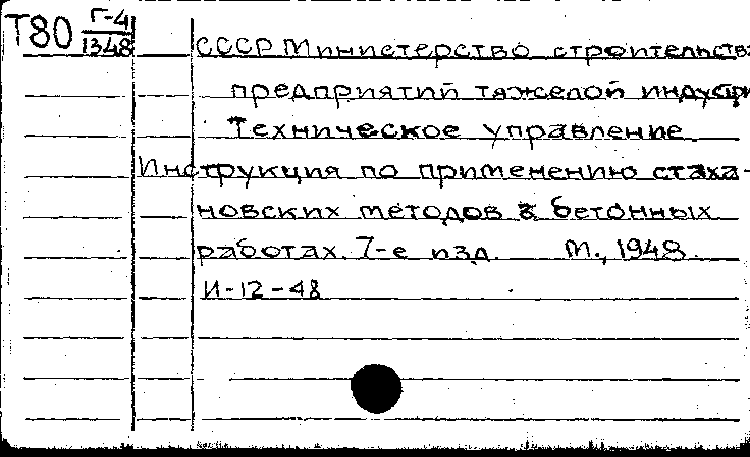 Т80 Г-4
1348
СССР Министерство строительства
предприятий тяжелой индустри
Техническое управление
Инструкция по применению стаха-
новских методов в бетонных
работах. 7-е изд. М., 1948.
И-12-48